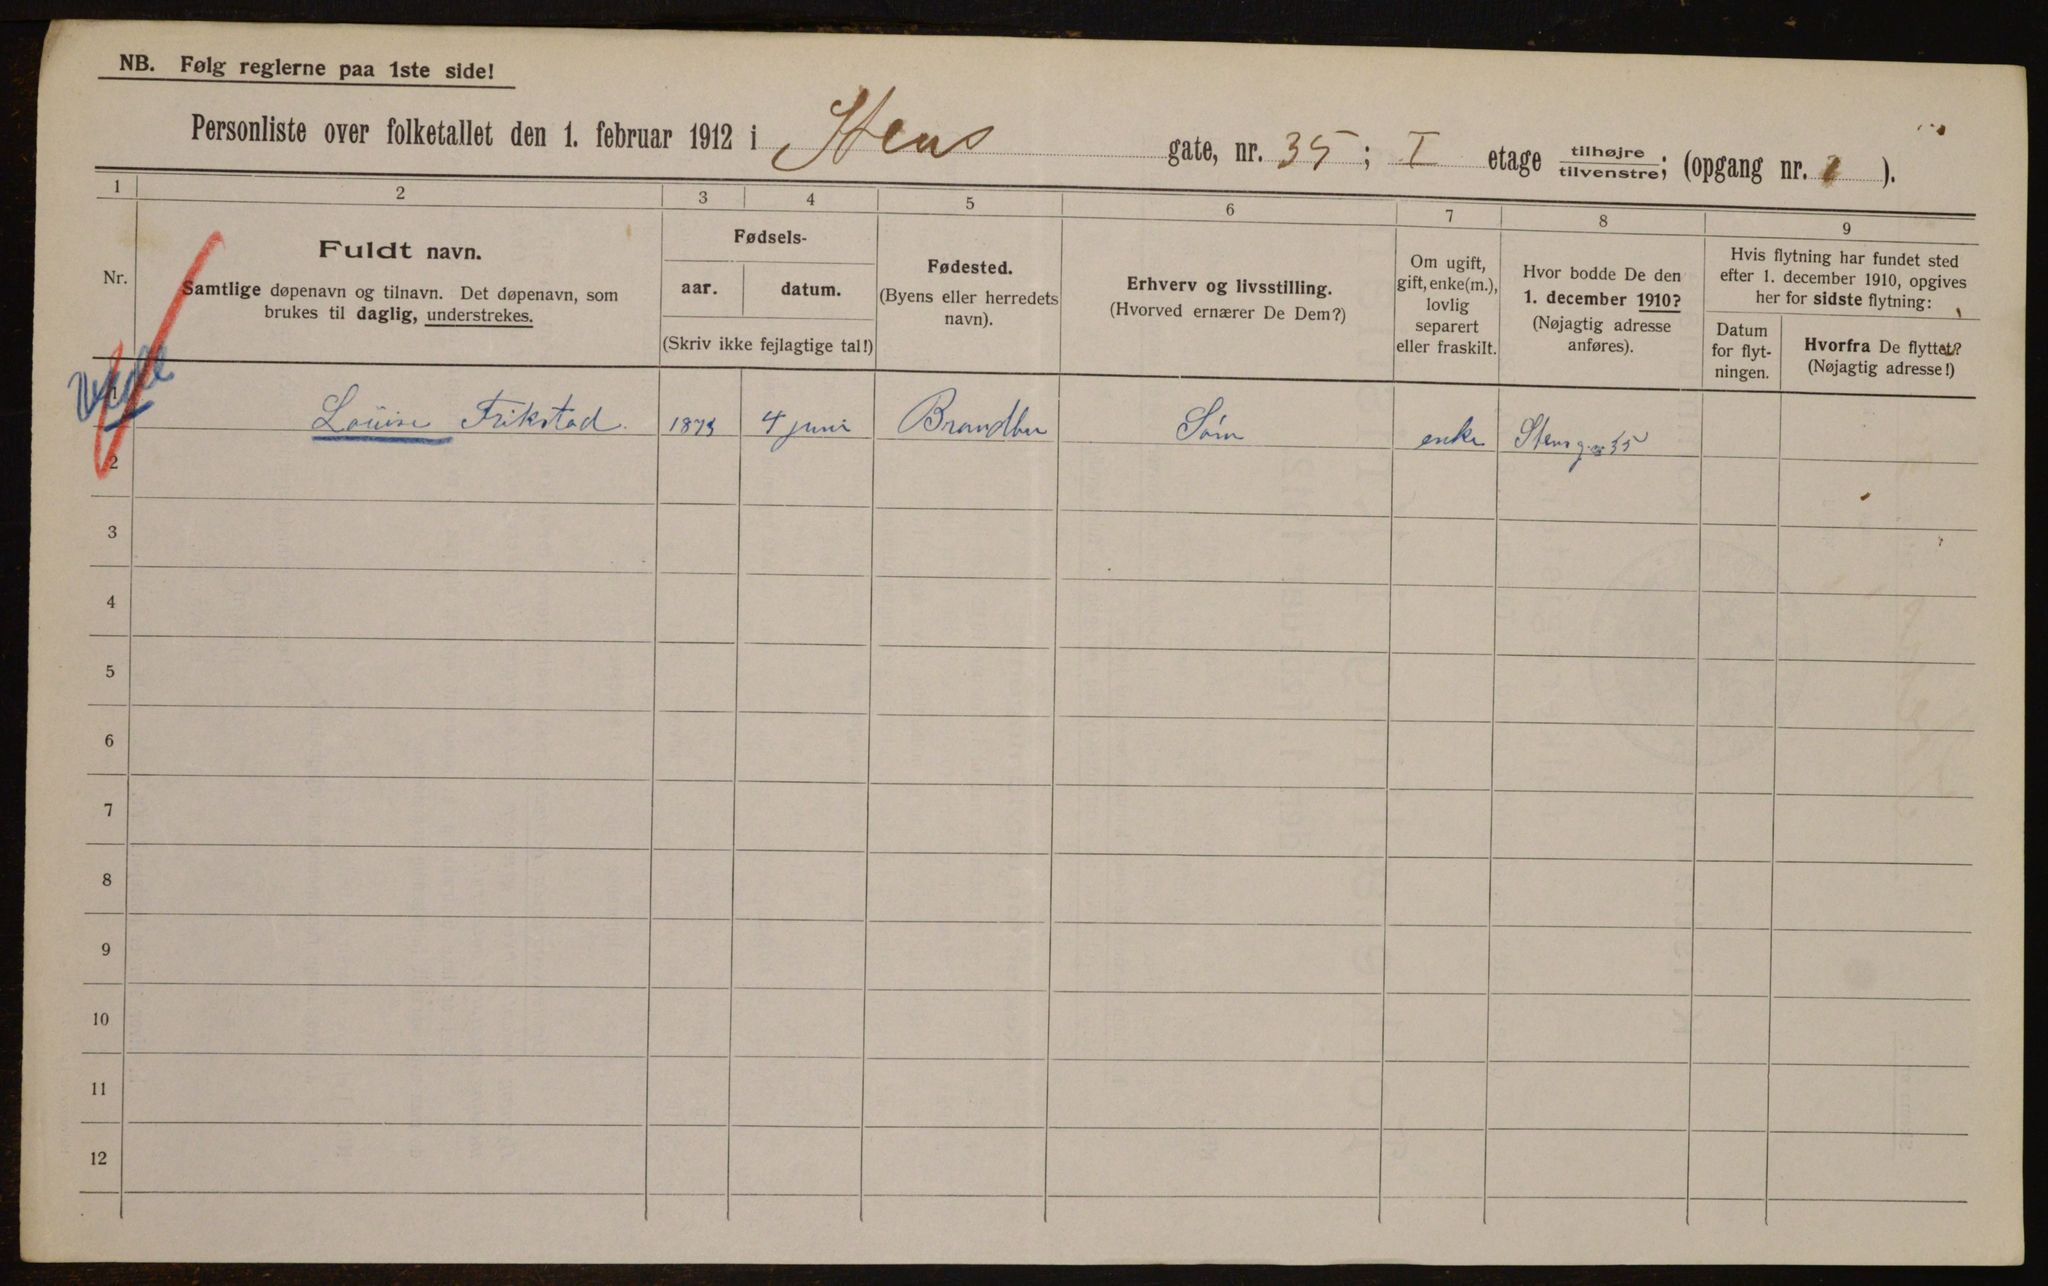 NB. Følg reglerne paa 1ste side!
Personliste over folketallet den 1. februar 1912 i Stens gate, nr. 35; I etage tilhøjre tilvenstre; (opgang nr. ).
1 2 3 4 5 6 7 8 9
Nr.
Fuldt navn.
Samtlige døpenavn og tilnavn. Det døpenavn, som
brukes til daglig, understrekes.
Fødsels-
aar. datum.
(Skriv ikke fejlagtige tal!)
Fødested.
(Byens eller herredets
navn).
Erhverv og livsstilling.
(Hvorved ernærer De Dem?)
Om ugift,
gift, enke(m.),
lovlig
separert
eller fraskilt.
Hvor bodde De den
1. december 1910?
(Nøjagtig adresse
anføres).
Hvis flytning har fundet sted
efter 1. december 1910, opgives
her for sidste flytning:
Datum
for flyt-
ningen.
Hvorfra De flyttet?
(Nøjagtig adresse!)
1 Louise Frikstad 1873 4 juni Brandbu enke Stensg 35
2
3
4
5
6
7
8
9
10
11
12